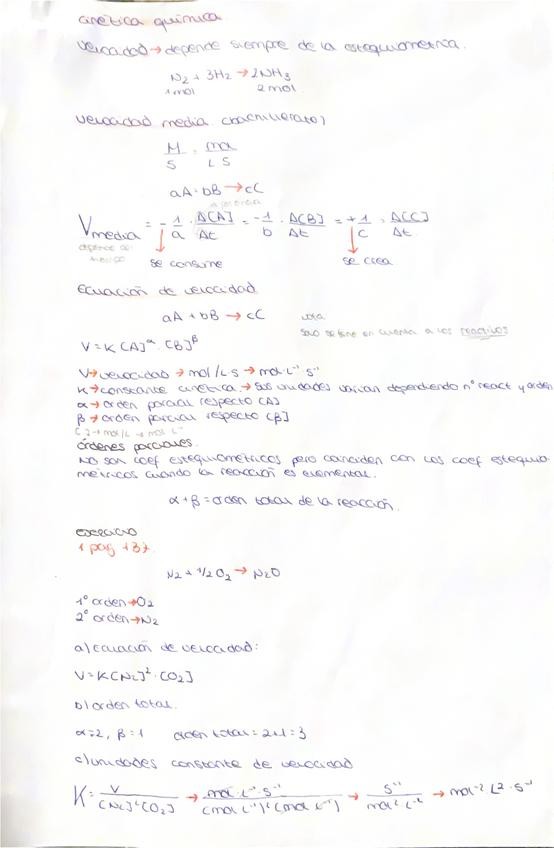 cinética química
velocidad → depende siempre de la estequiometria.
N₂ + 3H₂ → 2NH₃
1 mol 2 mol
velocidad media (bachillerato)
M/S = mol/L S
aA + bB → cC
Vmedia = - 1/a · Δ[A]/Δt = -1/b · Δ[B]/Δt = +1/c · Δ[C]/Δt
depende del
se consume se crea
Ecuación de velocidad
aA + bB → cC
nota
solo se tiene en cuenta a los reactivos
V = K [A]^α · [B]^β
V → velocidad → mol/L·s → mol·L⁻¹ s⁻¹
K → constante cinética → sus unidades varian dependiendo nº react y orden
α → orden parcial respecto [A]
β → orden parcial respecto [B]
[ ] → mol/L → mol L⁻¹
órdenes parciales.
No son coef estequiométricos pero coinciden con los coef estequio-
métricos cuando la reacción es elemental.
α + β = orden total de la reacción.
ejercicio
1 pag 137
N₂ + 1/2 O₂ → N₂O
1º orden → O₂
2º orden → N₂
a) Ecuación de velocidad:
V = K [N₂]² · [O₂]
b) orden total.
α=2, β=1 orden total = 2+1 = 3
c) unidades constante de velocidad
K = V/[N₂]²[O₂] → mol·L⁻¹·S⁻¹/(mol L⁻¹)²(mol L⁻¹) → S⁻¹/mol² L⁻² → mol⁻² L² · S⁻¹